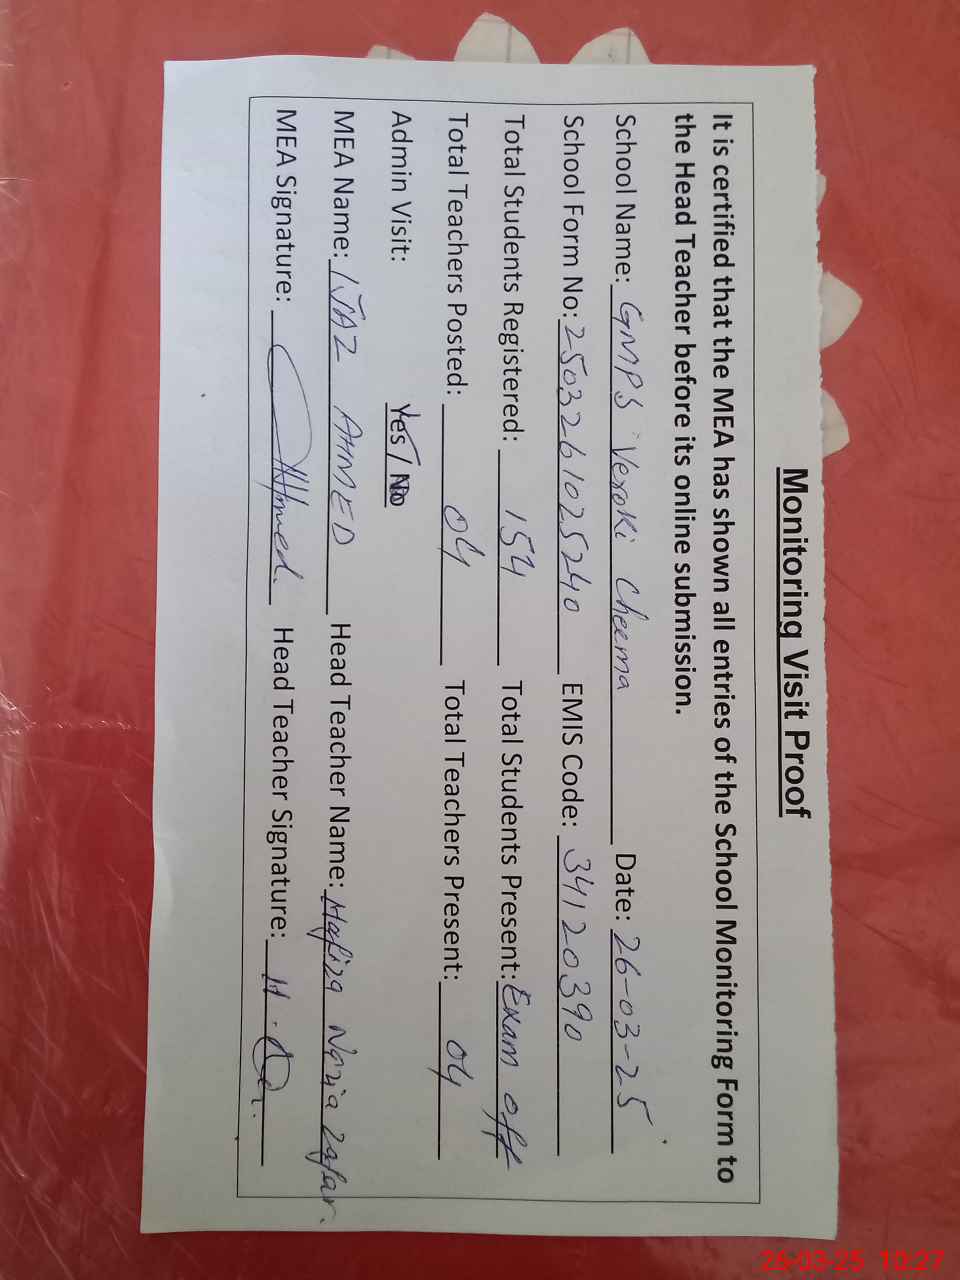 Monitoring Visit Proof
It is certified that the MEA has shown all entries of the School Monitoring Form to
the Head Teacher before its online submission.
School Name: GMPS Veroki Cheema Date: 26-03-25
School Form No: 2503261025240 EMIS Code: 34120390
Total Students Registered: 154 Total Students Present: Exam off
Total Teachers Posted: 04 Total Teachers Present: 04
Admin Visit: Yes / No
MEA Name: IJAZ AHMED Head Teacher Name: Hafiza Nazia Zafar.
MEA Signature: Ahmed. Head Teacher Signature: H.
26-03-25 10:27